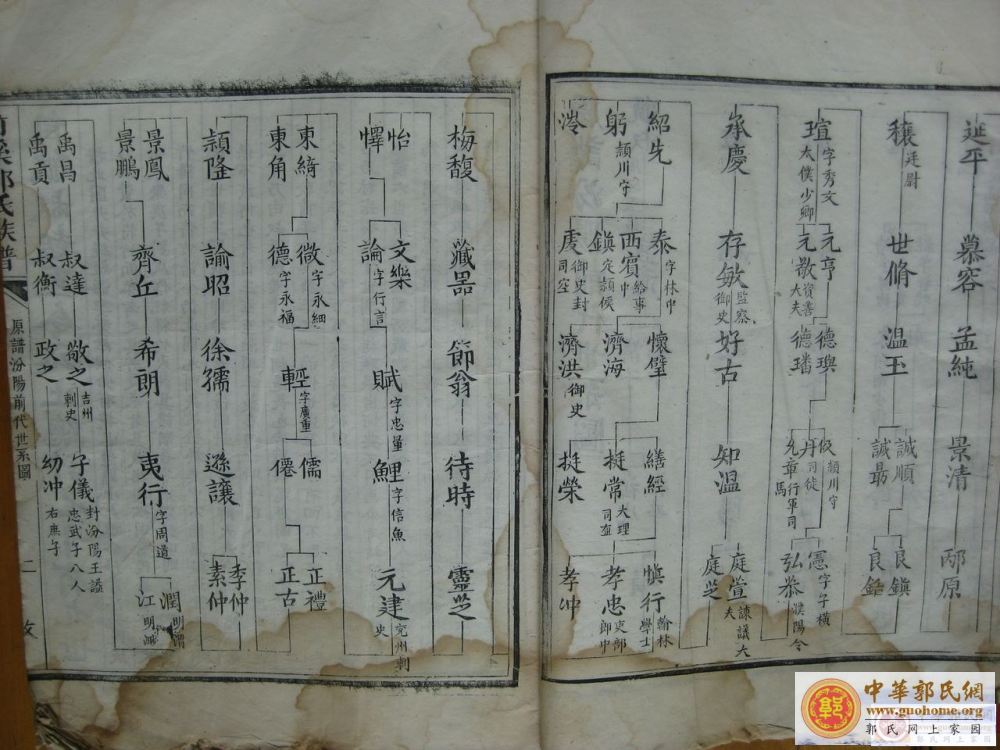 延平 慕容 孟純 景清 邴原
穰 廷尉 世脩 温玉 誠順 誠勗 良鎮
瑄 字秀文 太僕少卿 元亨 元敬 資善大夫 德璵 德璠 伋 潁川守 丹 司徒 允章 行軍司馬 憲 字子橫 弘恭 濮陽令
承慶 存敏 監察御史 好古 知温 庭萱 諫議大夫 庭芝
紹先 泰 字林中 懷璧 繕經 慎行 翰林學士
躬 潁川守 西賓 給事中 鎮 定潁侯 濟海 挺常 大理司 孝忠 吏部郎中
浵 虔 御史封司空 濟洪 御史 挺榮 孝仲
梅馥 藏器 節翁 待時 靈芝
怡 懌 文樂 論 字行言 賦 字忠量 鯉 字信魚 元達 兖州刺史
東綺 東角 微 字永細 德 字永福 輕 字廣重 儒 僊 正禮 正古
頴隆 諭昭 徐孺 遜讓 季仲 素仲
景鳳 景鵬 齊丘 希朗 夷行 字周道 潤 江
禹昌 禹貢 叔達 叔衡 敬之 吉州刺史 政之 子儀 封汾陽王謚忠武子八人 幼冲 右庶子
郭氏族譜 原譜汾陽前代世系圖 二
中華郭氏網
www.guohome.org
郭氏网上家园